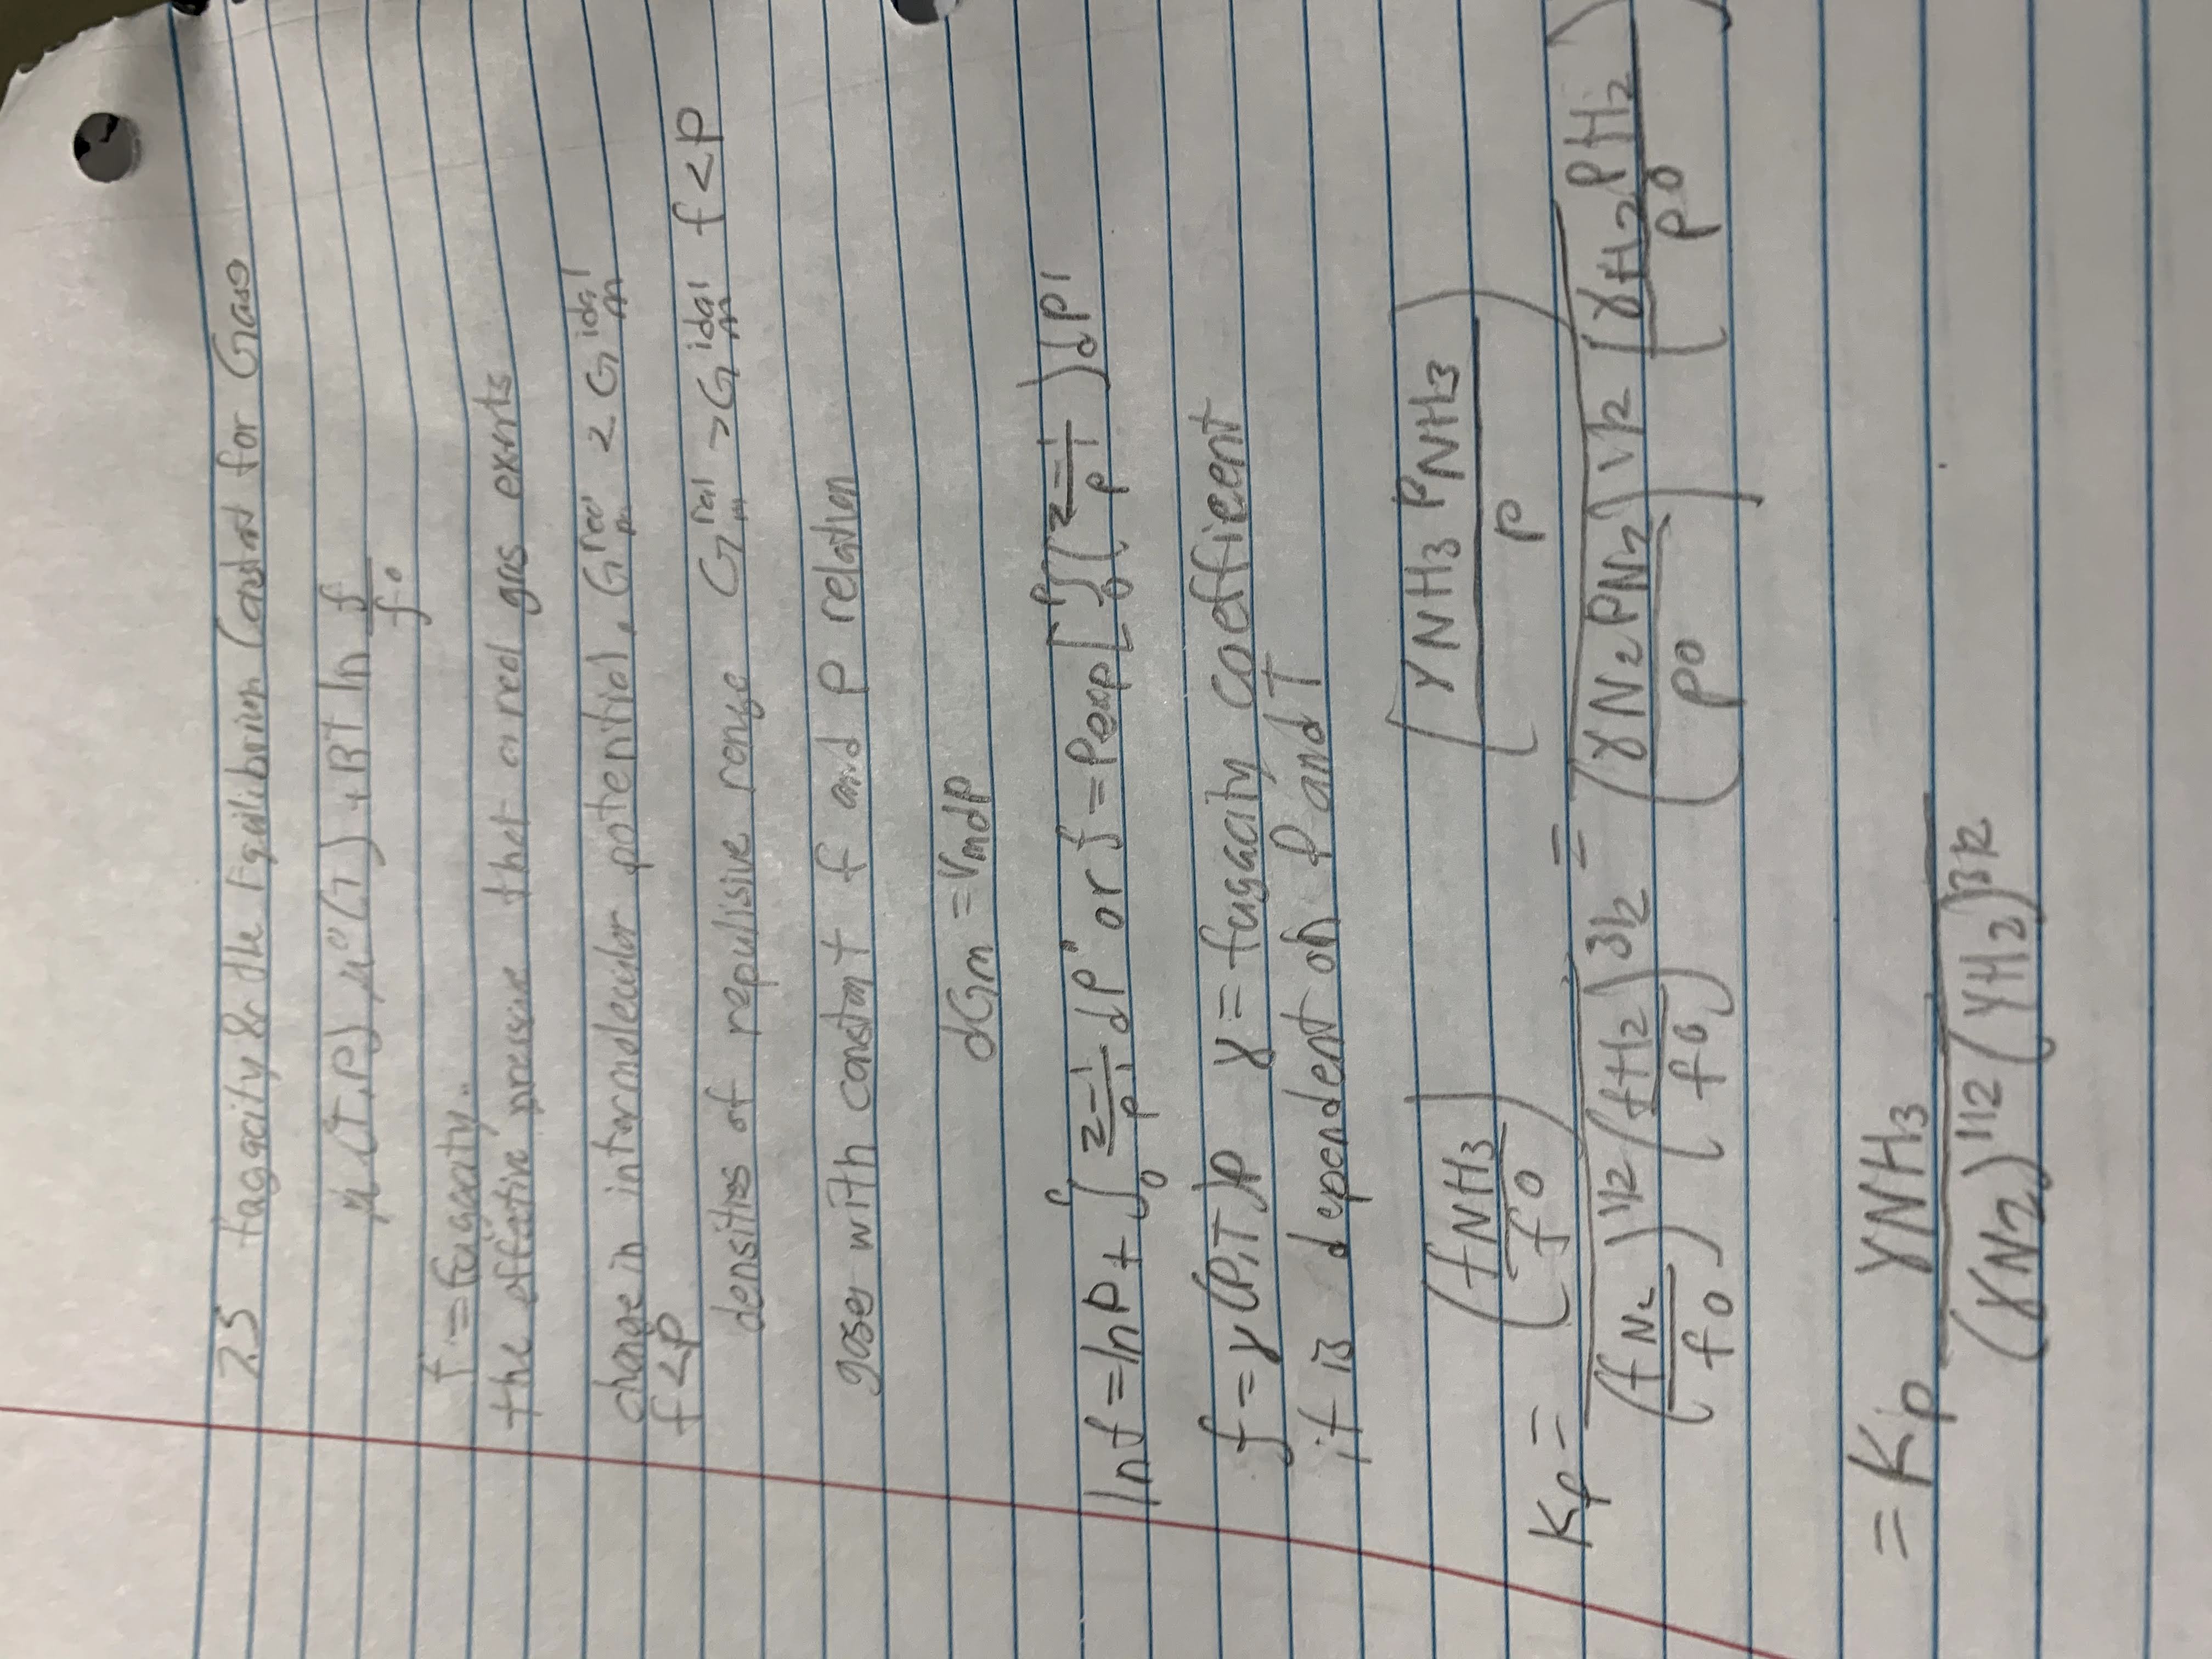 7.5 fagacity & the Equilibrium Constant for Gases
μ(T,P) μ°(T) + RT ln f/f°
f = fagacity..
the effective pressure that a real gas exerts
change in intermolecular potential. G_m^real < G_m^idal
f<P
densities of repulisive range G_m^ral > G_m^idal f<P
gases with constant f and P relation
dGm = Vmdp
ln f = ln P + ∫_0^P (z-1)/P' dP' or f = P exp[∫_0^P ((z-1)/P')dP'
f = γ(P,T)P γ = fugacity coefficent
it is dependent on P and T
Kf = (fNH3/f0) / (fN2/f0)^1/2 (fH2/f0)^3/2 = [γNH3 PNH3/P) / (γN2PN2/P0)^1/2 (γH2PH2/P0)
= Kp γNH3 / (γN2)^1/2 (γH2)^3/2